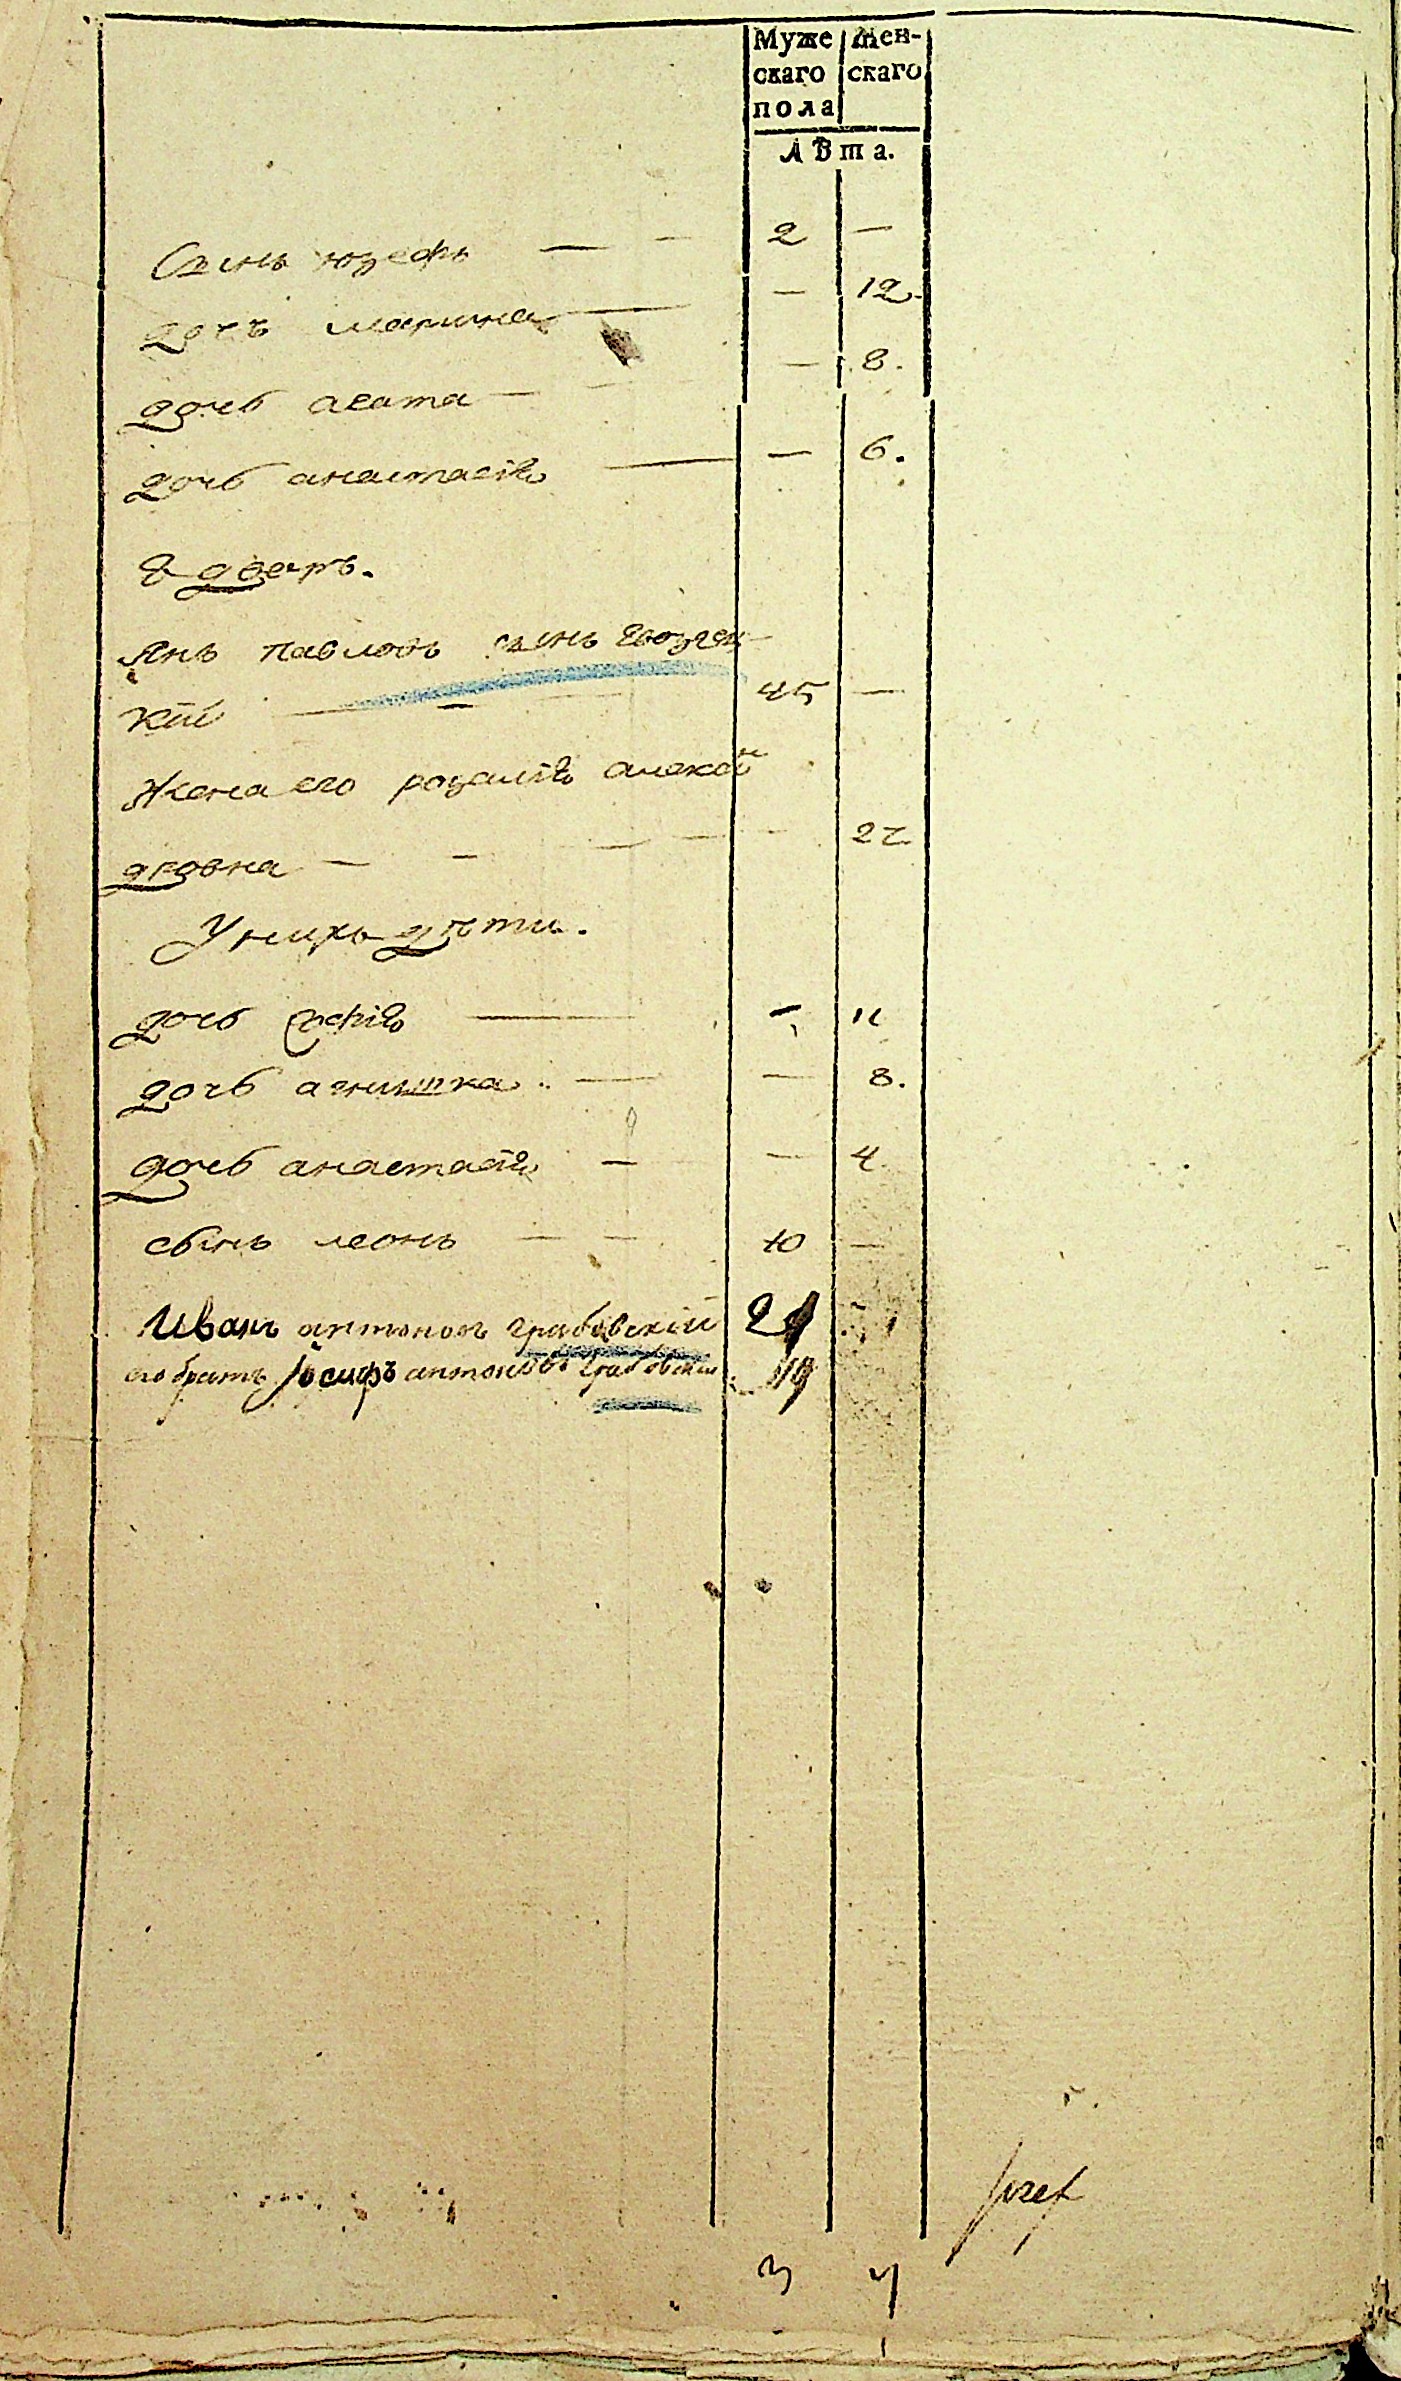 Муже Жен-
скаго скаго
пола
Лѣта.
Сынъ юзефъ — — 2 —
дочь марина — — 12.
дочь агата — — 8.
дочь анастасія — — 6.
дворъ.
Янъ павловъ сынъ
кій — — 45 —
Жена его розалія алексан
дровна — — — 27
У нихъ дѣти.
дочь софія — — 11
дочь агнишка — — 8.
дочь анастасія — — 4
сынъ леонъ — — 10 —
Иванъ антоновъ грабовскій
его братъ Іосифъ антоновъ грабовскій
Jozef
3 7